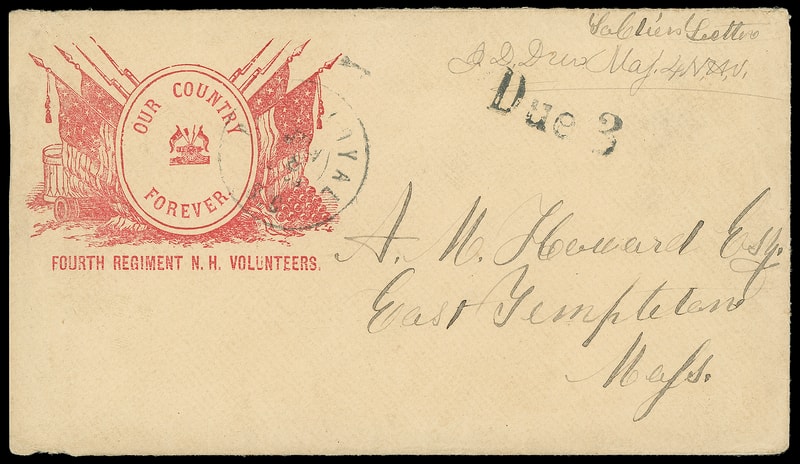 Soldiers Letter
J. D. Drew Maj. 4 N.H.V.
Due 3
OUR COUNTRY
FOREVER
FOURTH REGIMENT N. H. VOLUNTEERS.
A. M. Howard Esq.
East Templeton
Mass.